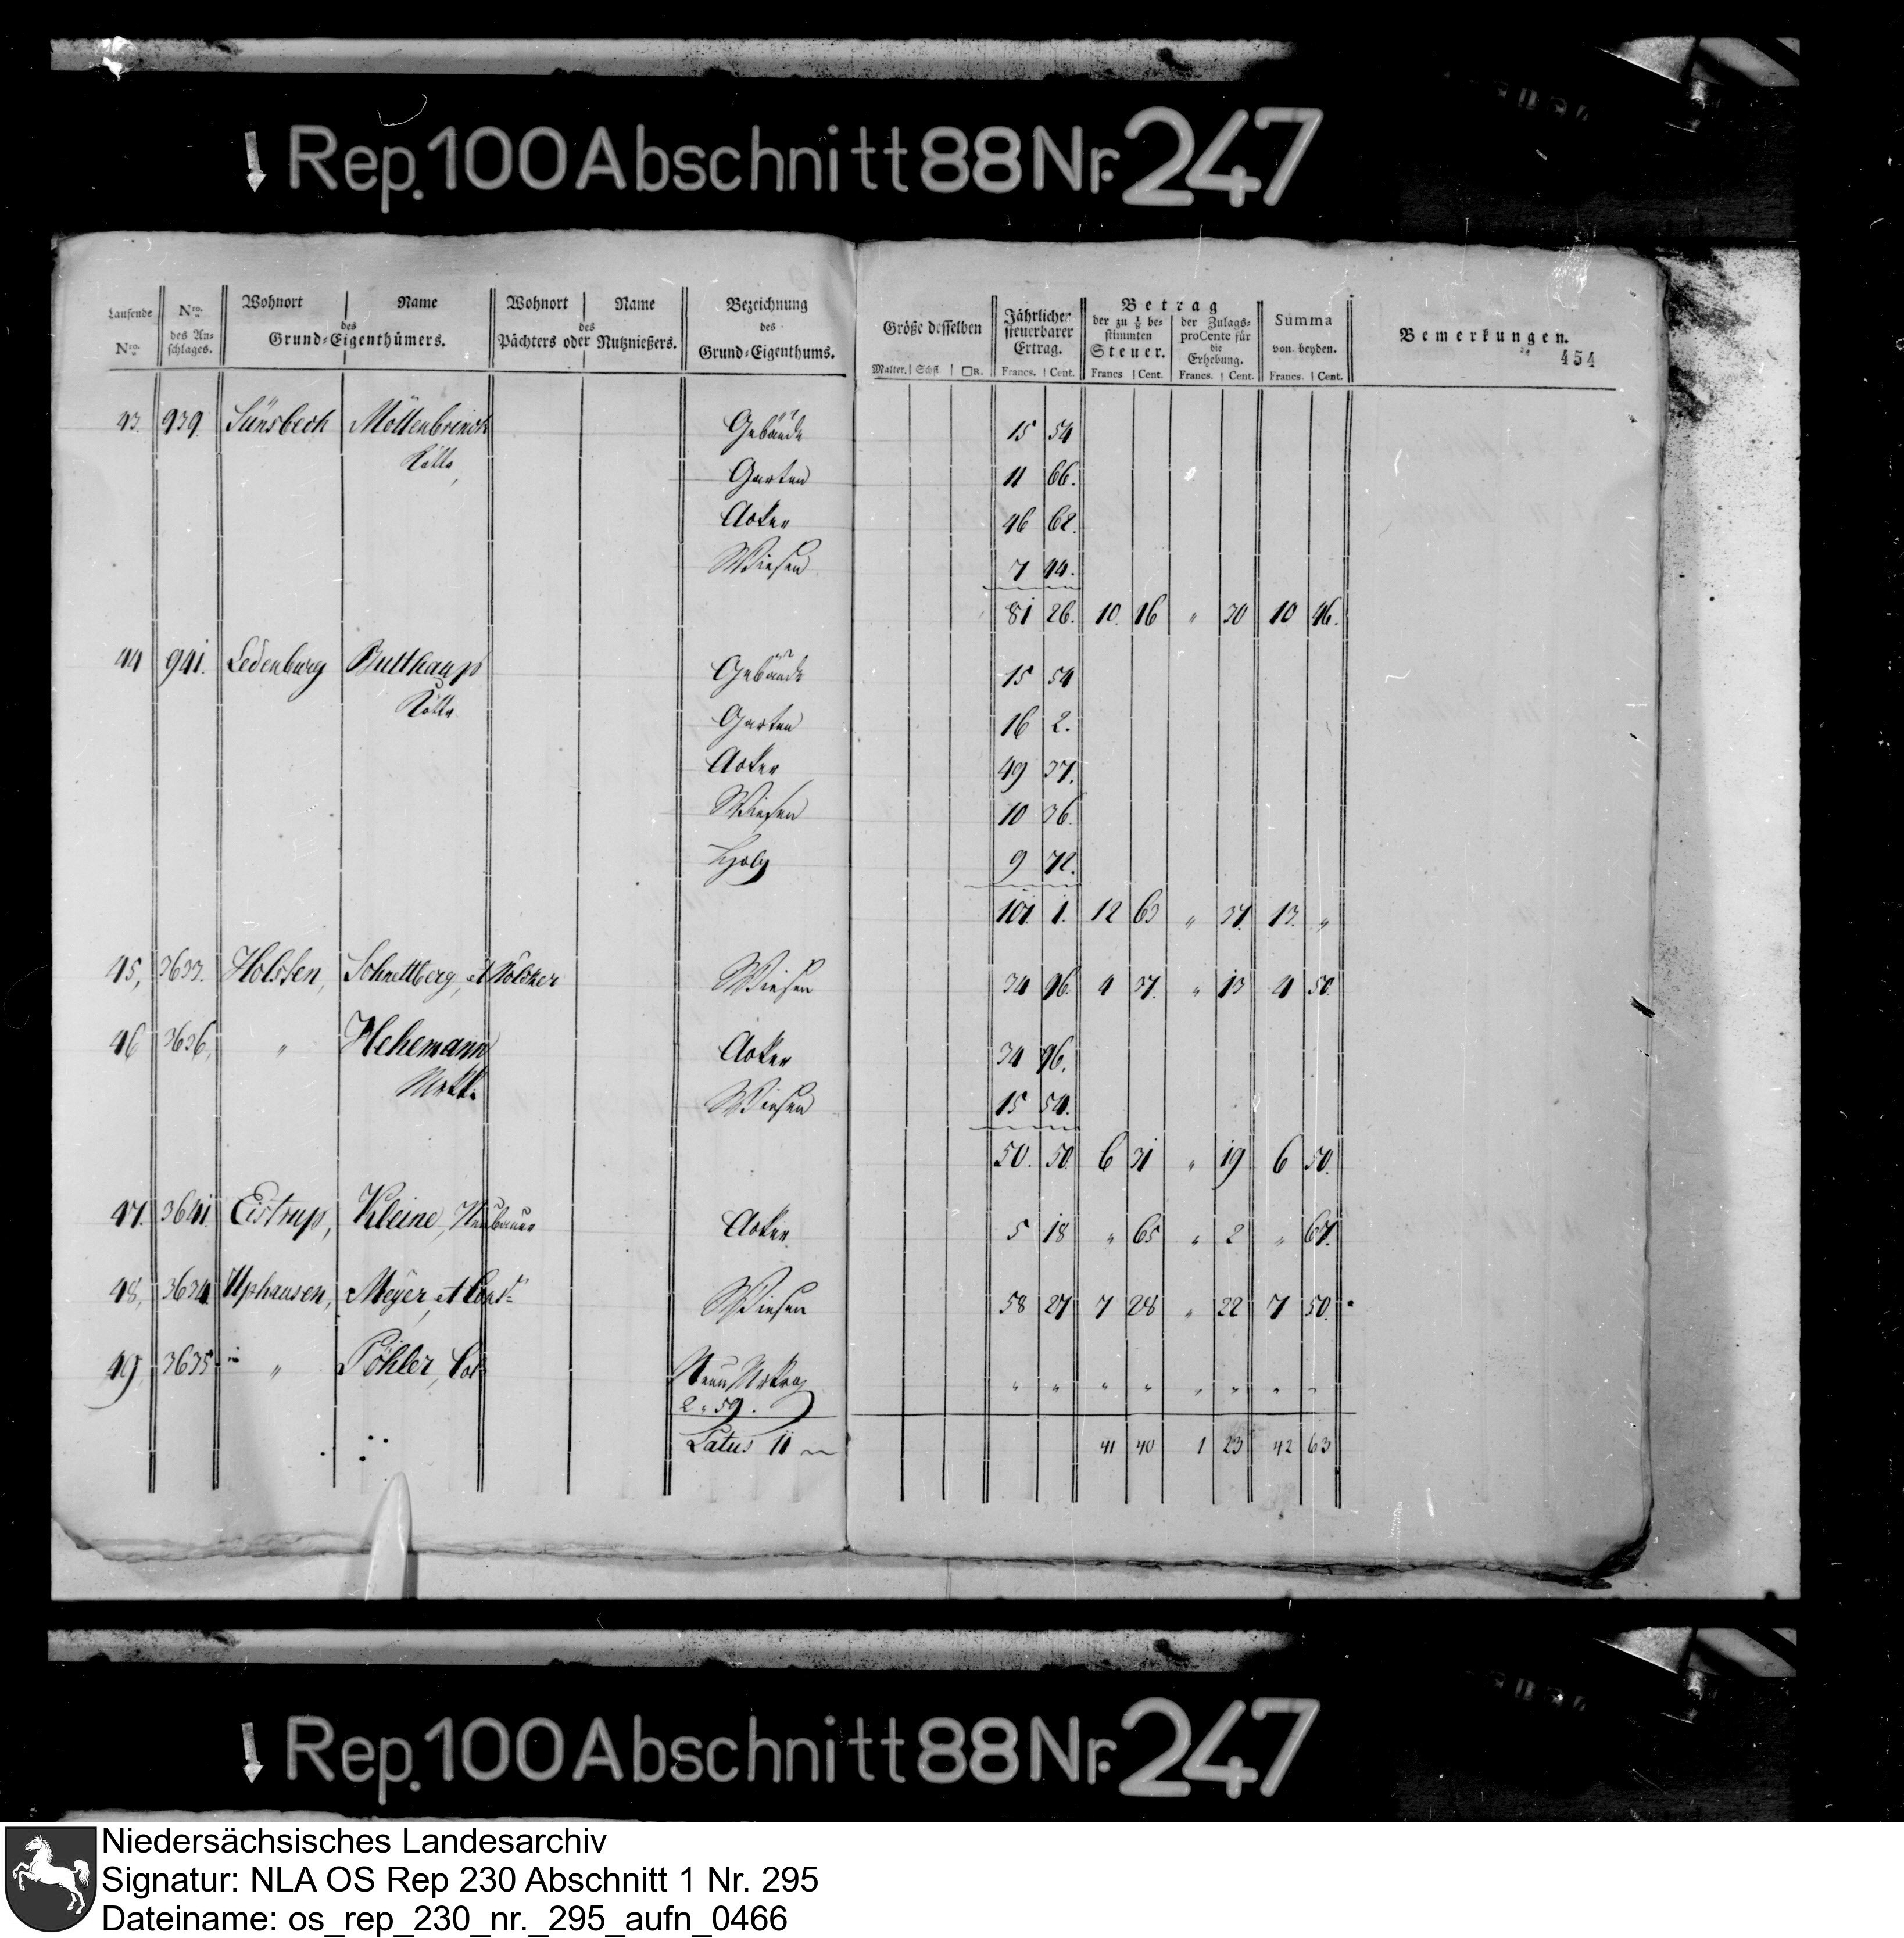 Rep. 100 Abschnitt 88 Nr. 247
Laufende Nro. | Nro. des An-schlages. | Wohnort | Name des Grund-Eigenthümers. | Wohnort | Name des Pächters oder Nutznießers. | Bezeichnung des Grund-Eigenthums. | Größe desselben Malter. Schfl □R. | Jährlicher steuerbarer Ertrag. Francs. Cent. | Betrag der zu ⅛ be-stimmten Steuer. Francs Cent. | der Zulags-proCente für die Erhebung. Francs. Cent. | Summa von beyden. Francs. Cent. | Bemerkungen.
454
43. 939. Sünsbeck Möllenbrinck Gebäude 15 54
Kötte, Garten 11 66.
Acker 46 62.
Wiesen 7 44.
81 26. 10. 16 " 30 10 46.
44 941. Ledenburg Butthaup Gebäude 15 54
Kötte Garten 16 2.
Acker 49 37.
Wiesen 10 36.
Holz 9 72.
101. 1. 12 63 " 37. 13. "
45, 3633. Holsten, Schnettberg, et Kölcker Wiesen 34 96. 4 37. " 13 4 50.
46 3636, " Hehemann Acker 34 96.
Mrkk. Wiesen 15 54.
50. 50. 6 31 " 19 6 50.
47. 3641. Eistrup, Kleine, Neubauer Acker 5 18 " 65 " 2 " 67.
48, 3634. Uphausen, Meyer, et Cons. Wiesen 58 27 7 28 " 22 7 50.
49, 3635 " Pöhler, Col. " " " " " " " "
2 . 59.
Latus 11 41 40 1 23 42 63
Rep. 100 Abschnitt 88 Nr. 247
Niedersächsisches Landesarchiv
Signatur: NLA OS Rep 230 Abschnitt 1 Nr. 295
Dateiname: os_rep_230_nr._295_aufn_0466